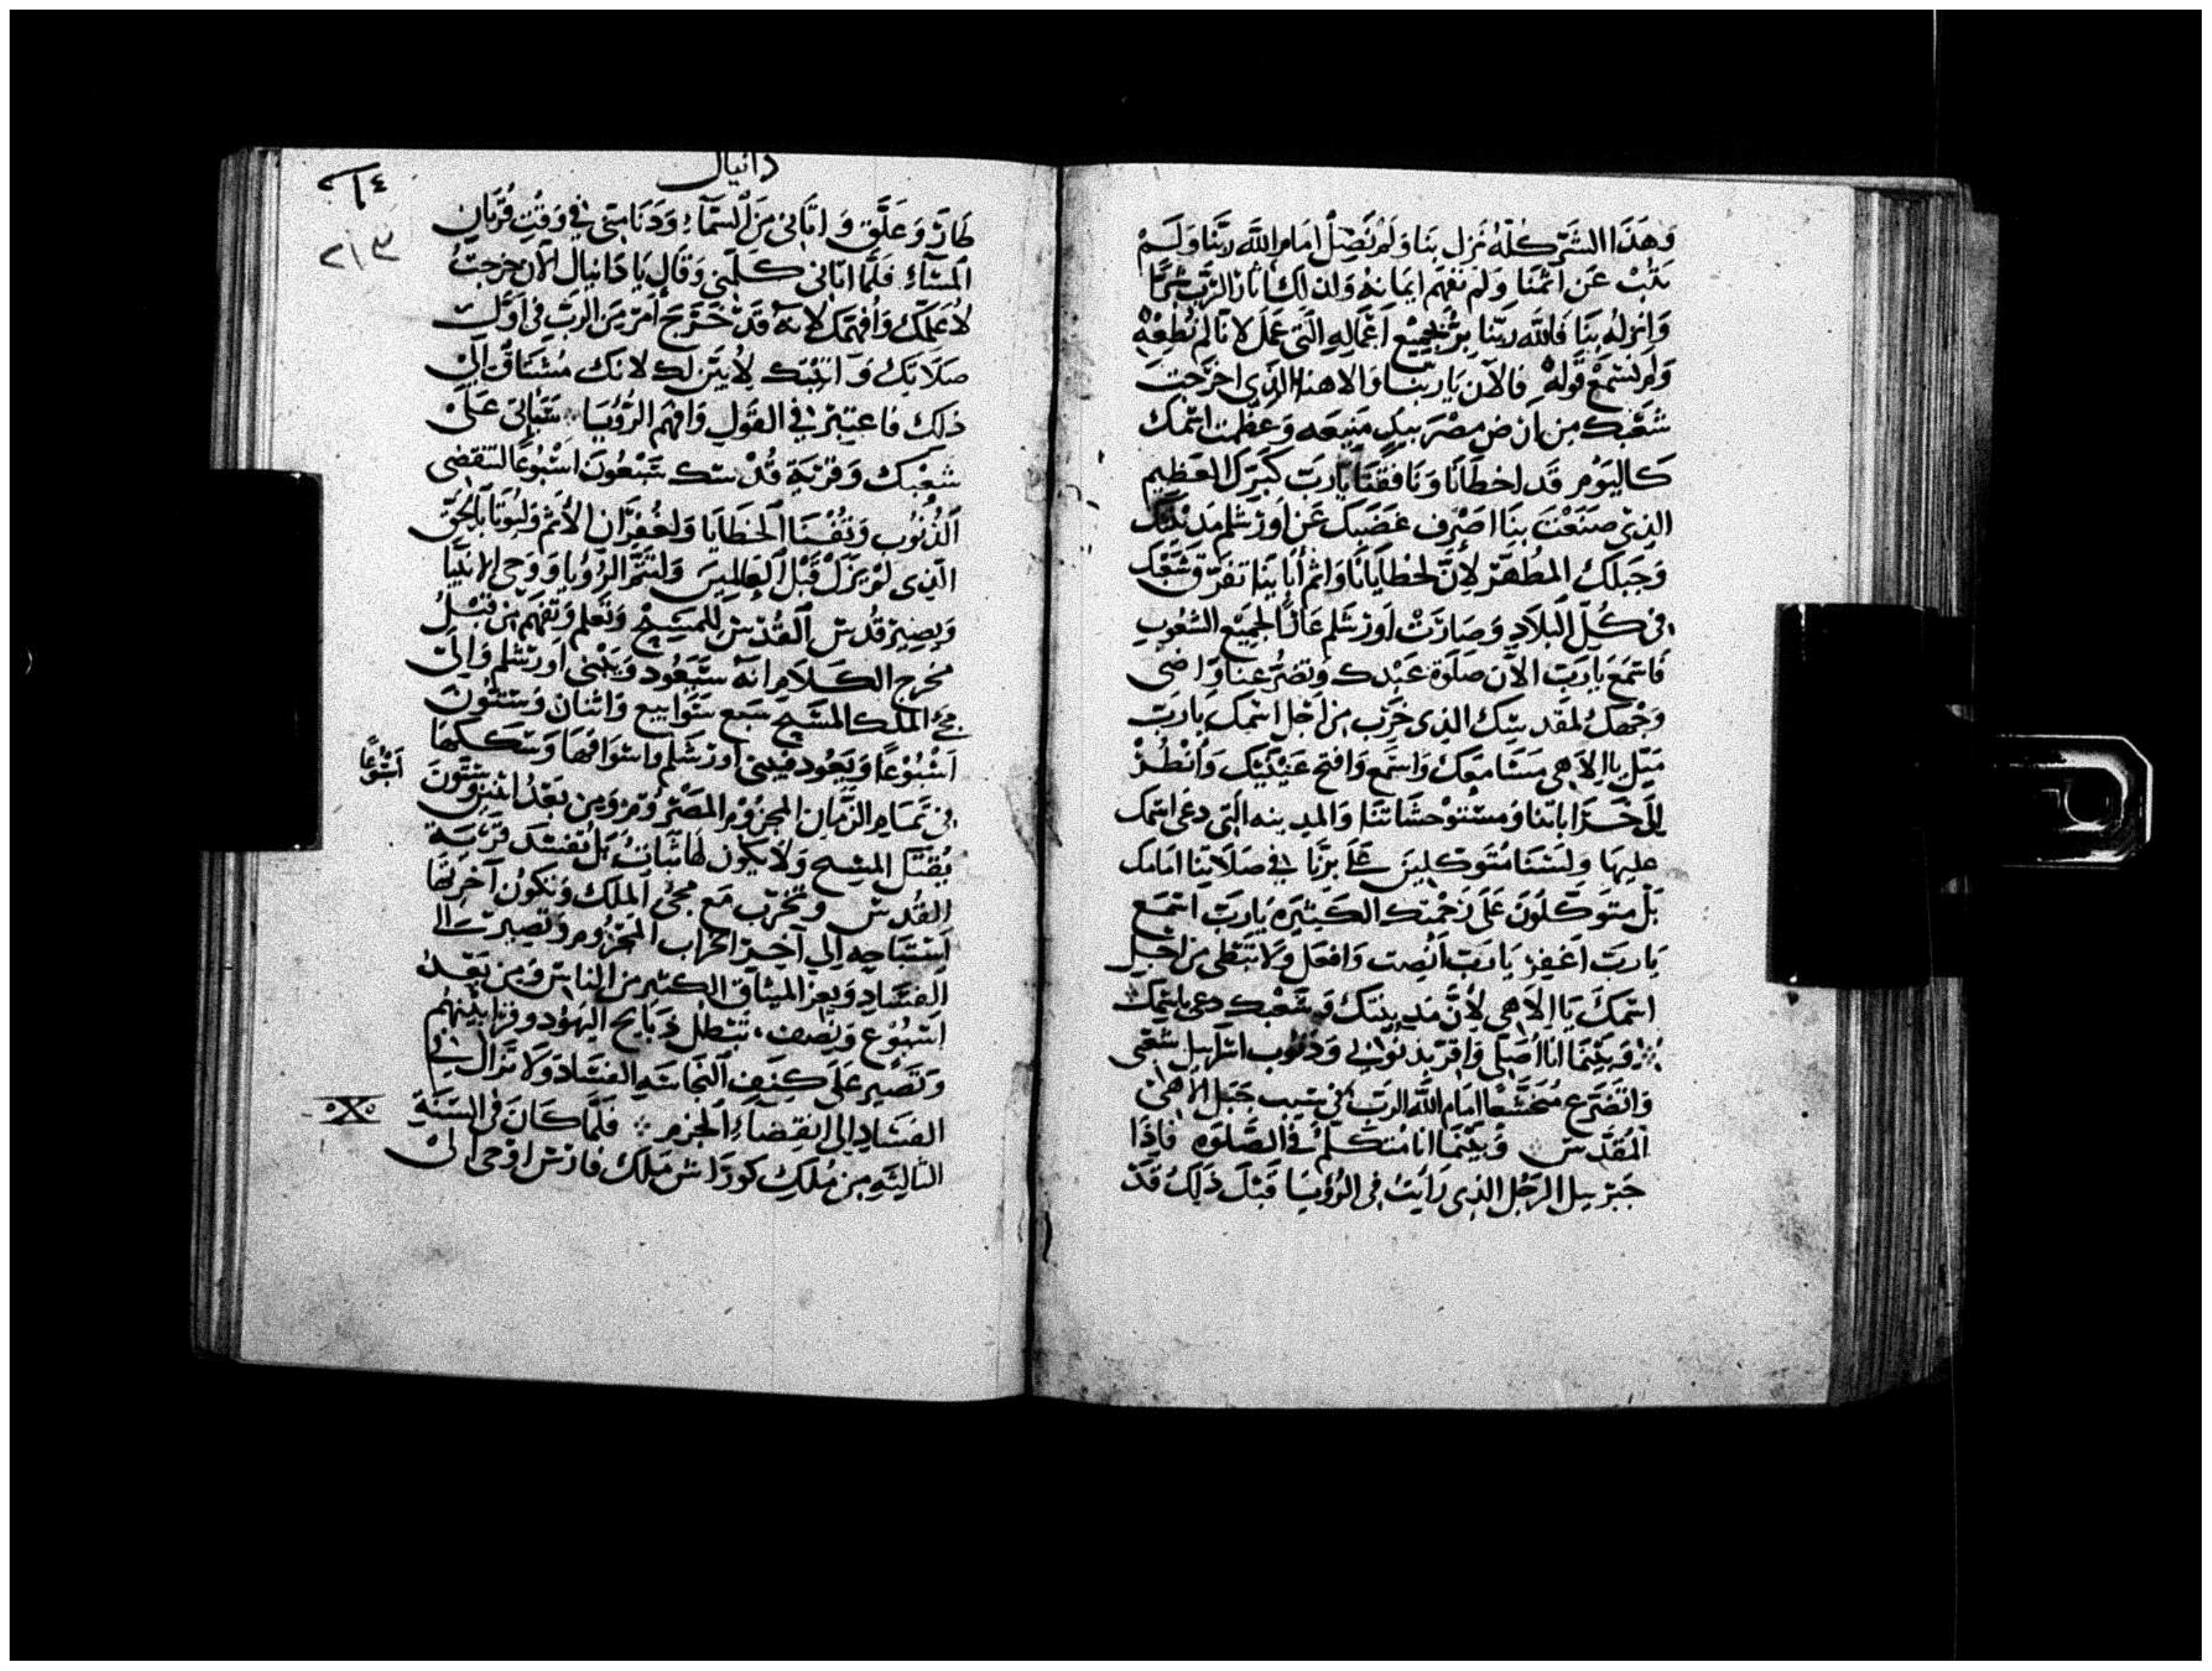 وَهَذَا الشَرّ كُلّهُ نَزل بنَا وَلم نصَلّ امَام اللّه ربّنَا وَلَمْ
نتُبْ عَن آثمنَا وَلم نفهَم ايمَانهُ وَلذلكَ اثار الرَّب شرًّا
وَانزلهُ بنَا فَاللّه ربّنَا برٌّ بجميْع اَعْمَالهِ الّتى عَمَل لانَا لم نُطِعْهِ
وَلَم نسْمَعْ قَولهْ فالآن يَا ربنَا وَالاهنا الذى اخرَجت
شَعْبكَ مِن ارْض مصْرَ بيَدٍ مَنِيعَه وَعَظمت اسْمك
كاليَوْم قَد اخطَانَا وَنَافقْنَا يَا رَبّ كَبِرّكَ العَظِيم
الذِىْ صنَعْتَ بِنَا اصْرِف غضَبكَ عَن اورْشلم مَديْنتك
وَجَبَلكَ المُطهّر لأنَّ لخطَايَانَا وَاثم أبَايِنَا تفرّق شعْبكَ
فى كُلّ البلَادِ وَصَارَتْ اورْشَلم عَارًا لجمَيْع الشعُوبِ
فَاسْمَع يَا رَبّ الآن صَلَوة عَبْدك وَتضرّعنا وَاضى
وَجْهكَ لمَقدسِك الذى خَرَب مِن اجْل اسْمكَ يا رَبّ
مَيّل يا الاهى مسَامعَكَ وَاسْمع وَافتح عَيْنَيْكَ وَانْظُرْ
الى خَرَاباتنا وَمستوحشاتنَا وَالمدينه الّتى دعى اسْمكَ
عليهَا وَلَسْنَا مُتوَكلينَ عَلَى برّنَا فى صَلَاتِنا امَامك
بَل متوَكّلُونَ عَلَى رَحْمتك الكَثِيرَه يَا رَبّ اسْمَع
يَا رَبّ اغفِرْ يَا رَبّ انْصِت وَافعَل وَلَا تبْطى من اجْل
اسْمكَ يَا الَاهى لأنَّ مَدينتكَ وَشَعْبك دعى باسْمكَ
وَبيْنمَا انا اصَلّى وَاقرّ بذنُوبى وَذنُوب اسْرَاييل شعْبى
وَاتضَرّع مُتخشّعًا امَام اللّه الربّ فى سَبب جَبَل الاهى
المُقدّسْ وَبيْنمَا انا متَكلّم فى الصّلوه فاذَا
جَبرْييل الرجُل الذى رَأيتُ فى الرُؤيَا قَبْل ذَلكَ قَدْ
دانيال
٢١٤
٢١٣
طَارَ وَعَلّق وَاتانى مِنَ السّمآءِ وَدَنَا منّى فى وَقتِ قُربَان
المسآءِ فَلمّا اتانى كلّمنى وَقال يَا دَانيَال الآن خرجْتُ
لاعَلمكَ وَافهمَكَ لانهُ قَدْ خَرَج امْر مِنَ الربّ فى اوّل
صلَاتِكَ وَاتيْتك لأبَيّن لكَ لانكَ مشتاقٌ الَىْ
ذلكَ فاعتَبرْ فى القَول وَافهَم الرُؤيَا ستَاتى عَلَىْ
شعْبكَ وَقرْيَةِ قُدْسك سَبْعُونَ اسْبُوعًا لتنقضى
الذُنُوب وَتفْنَا الخطَايَا وَلغُفرَان الأثم وَليُوتا بالحَقّ
الذى لمْ يَزَلْ قَبْل العَالمين وَلتتمّ الرُؤيَا وَوَحى الانبيَا
وَيصِير قُدس القُدْس للمَسِيح وَتعلم وَتفهَم مِن قَبْل
مخرج الكَلَام انّه سَيَعُود وَيبْنى اورشَلم وَالَى
مجئ الملك المسيح سَبع سَوَابيع وَاثنان وَستّونَ
اسْبُوْعًا وَيَعُود فيبنى اورشَلم وَاسْوَاقهَا وَسككهَا
فى تمَام الزّمَان المجزُوم المَصْرُوم وَمِن بَعْد اثنين وَستّونَ
اسْبُوعًا
يُقتَل المسِيح وَلَا يَكُون لهَا ثبَات بَل تفسَد قَرْيَة
القُدس وَتخرَب مَع مجئ الملك وَتكُون آخِرتهَا
اسْتباحه الى آخِر الحرَاب المجْزُوم وَتصِير الى
الفسَاد وَيعز الميثَاق الكثير مِن النَاس وَمِن بَعْد
اسْبُوْع وَنصف تبْطل ذبَايح اليَهُود وَقرَابينهم
وَتصِير عَلَى كنيف النجَاسَه الفسَاد وَلَا تزَال فى
الفسَاد الى انقضَآءِ الجزم فَلمّا كَانَ فى السّنَةِ
الثالثَه مِن مُلك كورَاش مَلك فارس اوْحى الىْ